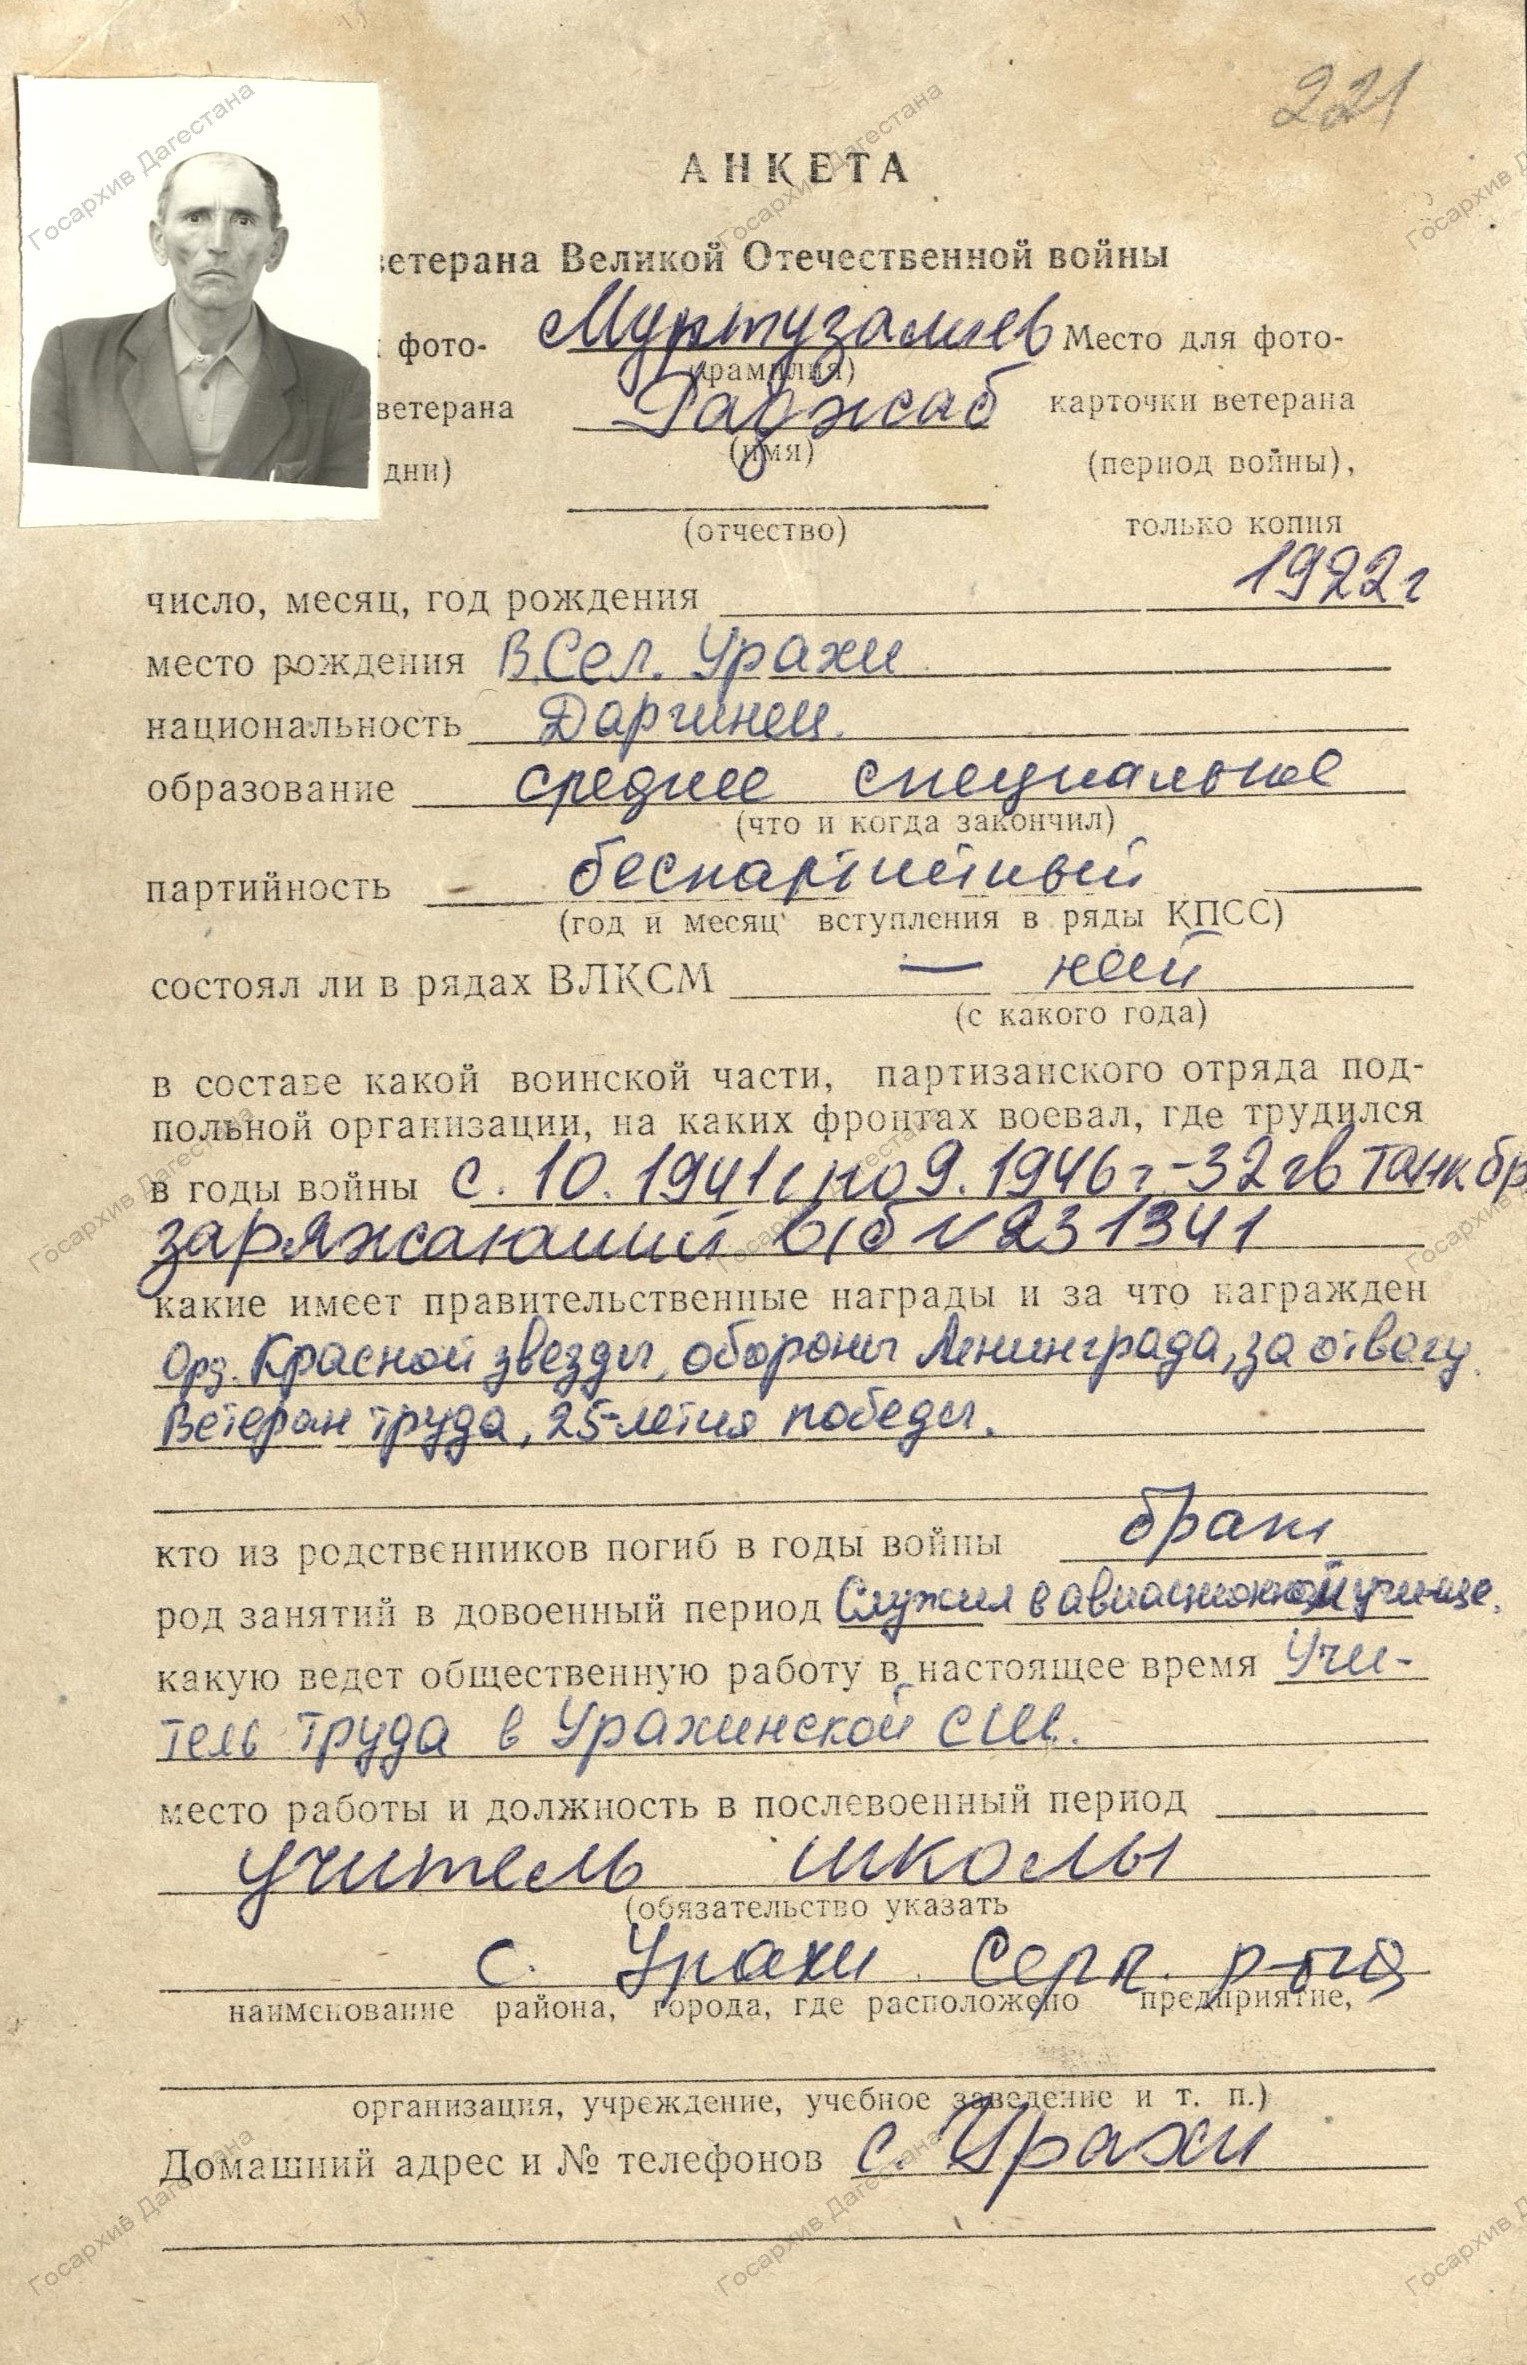 221
АНКЕТА
ветерана Великой Отечественной войны
фото-
Муртузалиев
Место для фото-
(фамилия)
ветерана
Раджаб
карточки ветерана
(имя)
дни)
(период войны),
(отчество)
только копия
число, месяц, год рождения 1922 г
место рождения В Сел. Урахи
национальность Даргинец.
образование среднее специальное
(что и когда закончил)
партийность - беспартийный
(год и месяц вступления в ряды КПСС)
состоял ли в рядах ВЛКСМ — нет
(с какого года)
в составе какой воинской части, партизанского отряда под-
польной организации, на каких фронтах воевал, где трудился
в годы войны с. 10. 1941 г по 9. 1946 г - 32 гв танк бр
заряжающий в/б № 231341
какие имеет правительственные награды и за что награжден
Орд. Красной звезды, обороны Ленинграда, за отвагу.
Ветеран труда, 25-летия победы.
кто из родственников погиб в годы войны брат
род занятий в довоенный период Служил в авиационном
какую ведет общественную работу в настоящее время Учи-
тель труда в Урахинской СШ.
место работы и должность в послевоенный период
учитель школы
(обязательство указать
с. Урахи Серг. р-на
наименование района, города, где расположено предприятие,
организация, учреждение, учебное заведение и т. п.)
Домашний адрес и № телефонов с. Урахи
Госархив Дагестана